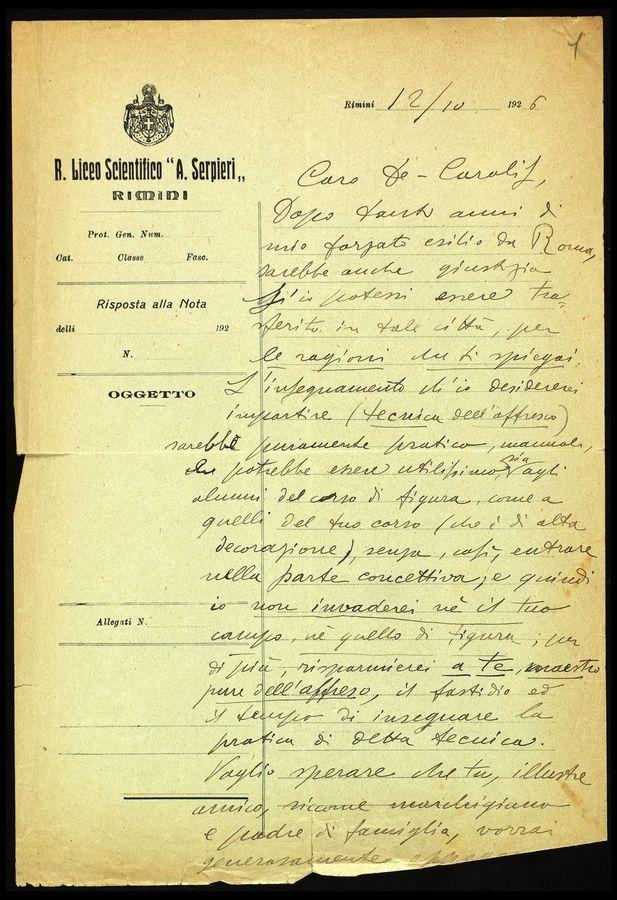 1
Rimini 12/10 1926
R. Liceo Scientifico "A. Serpieri„
RIMINI
Prot. Gen. Num.
Cat. Classe Fasc.
Risposta alla Nota
delli 192
N.
OGGETTO
Allegati N.
Caro De-Carolis,
Dopo tanti anni di
mio forzato esilio da Roma,
sarebbe anche giustizia
ch'io potessi essere tra-
sferito in tale città, per
le ragioni che ti spiegai.
L'insegnamento ch'io desidererei
impartire (tecnica dell'affresco)
sarebbe puramente pratico, manuale,
che potrebbe essere utilissimo, sia agli
alunni del corso di figura, come a
quelli del tuo corso (che è di alta
decorazione), senza, così, entrare
nella parte concettiva; e quindi
io non invaderei nè il tuo
campo, nè quello di figura; per
di più, risparmierei a te, maestro
pure dell'affresco, il fastidio ed
il tempo di insegnare la
pratica di detta tecnica.
Voglio sperare che tu, illustre
amico, siccome marchigiano
e padre di famiglia, vorrai
generosamente